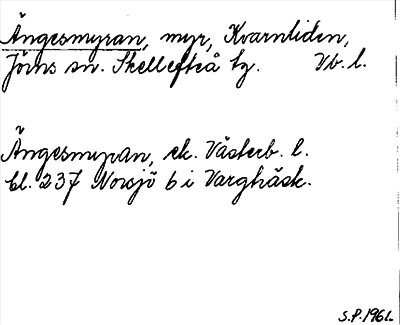 Ängesmyran, myr, Kvarnliden,
Jörns sn. Skellefteå tg. Vb. l.
Ängesmyran, ek. Västerb. l.
bl. 237 Norsjö b i Vargträsk.
S.P. 1961.